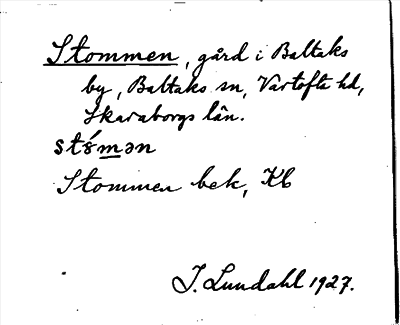 Stommen, gård i Baltaks
by, Baltaks sn, Vartofta hd,
Skaraborgs län.
Stommen bek, Kb
J. Lundahl 1927.